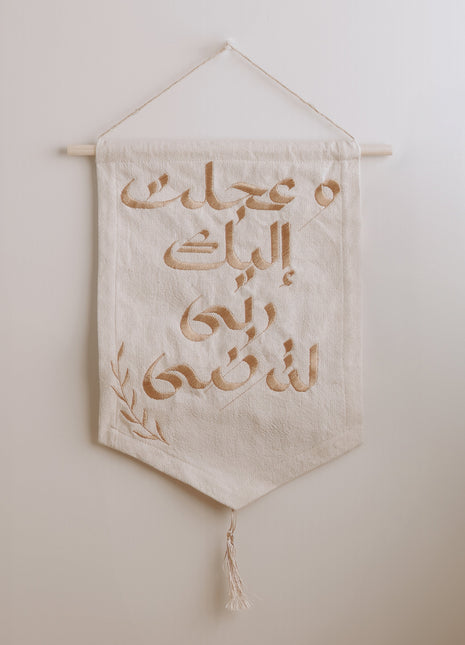 و عجلت
إليك
ربي
لترضى